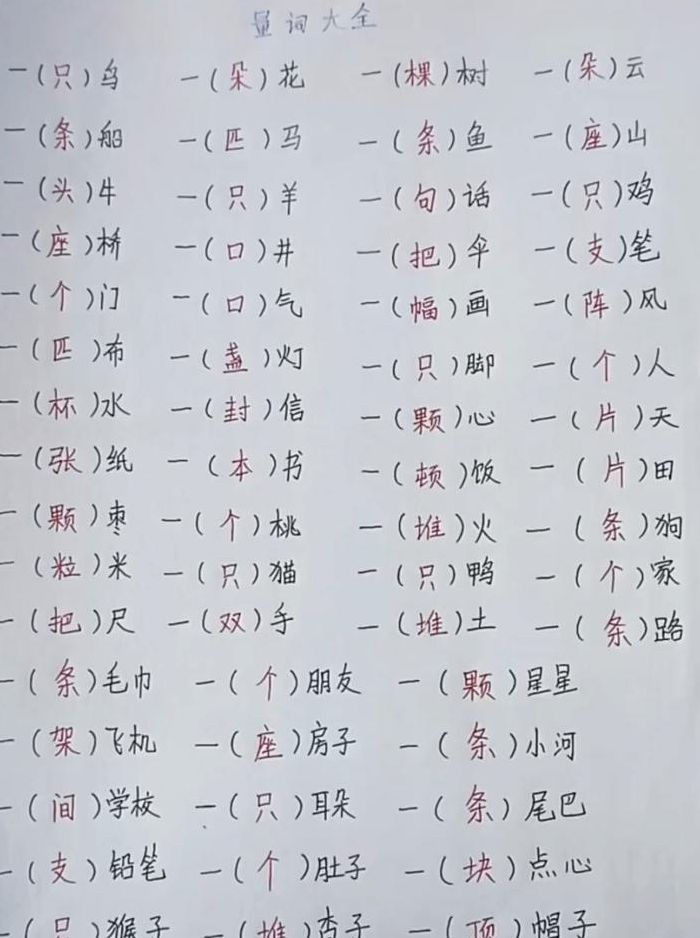 量词大全
一(只)鸟 一(朵)花 一(棵)树 一(朵)云
一(条)船 一(匹)马 一(条)鱼 一(座)山
一(头)牛 一(只)羊 一(句)话 一(只)鸡
一(座)桥 一(口)井 一(把)伞 一(支)笔
一(个)门 一(口)气 一(幅)画 一(阵)风
一(匹)布 一(盏)灯 一(只)脚 一(个)人
一(杯)水 一(封)信 一(颗)心 一(片)天
一(张)纸 一(本)书 一(顿)饭 一(片)田
一(颗)枣 一(个)桃 一(堆)火 一(条)狗
一(粒)米 一(只)猫 一(只)鸭 一(个)家
一(把)尺 一(双)手 一(堆)土 一(条)路
一(条)毛巾 一(个)朋友 一(颗)星星
一(架)飞机 一(座)房子 一(条)小河
一(间)学校 一(只)耳朵 一(条)尾巴
一(支)铅笔 一(个)肚子 一(块)点心
一(只)猴子 一(堆)杏子 一(顶)帽子